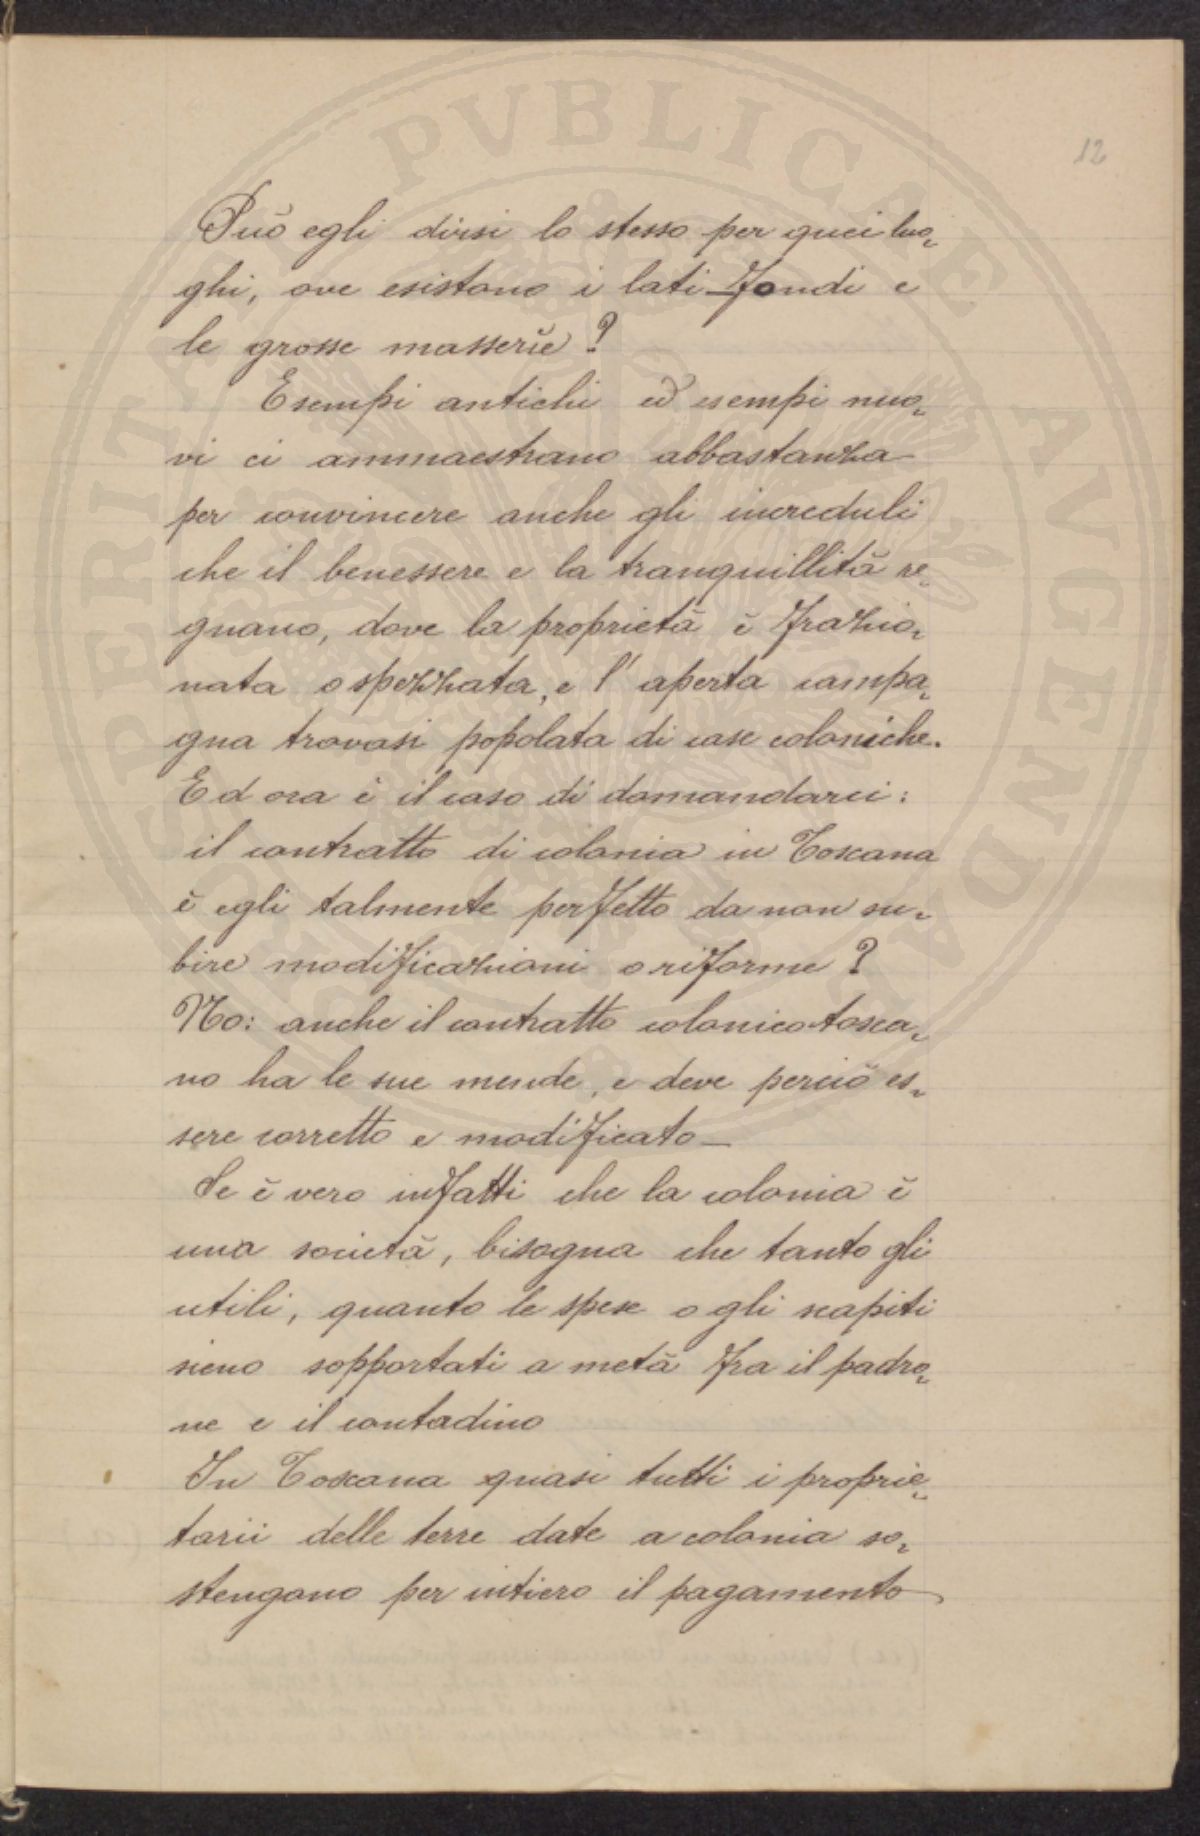 12
Può egli dirsi lo stesso per quei luo-
ghi, ove esistono i lati-fondi e
le grosse masserie?
Esempi antichi ed esempi nuo-
vi ci ammaestrano abbastanza
per convincere anche gli increduli
che il benessere e la tranquillità re-
gnano, dove la proprietà è frazio-
nata o spezzata, e l'aperta campa-
gna trovasi popolata di case coloniche.
Ed ora è il caso di domandarci:
il contratto di colonia in Toscana
è egli talmente perfetto da non su-
bire modificazioni o riforme?
No: anche il contratto colonico tosca-
no ha le sue mende, e deve perciò es-
sere corretto e modificato—
Se è vero infatti che la colonia è
una società, bisogna che tanto gli
utili, quanto le spese o gli scapiti
sieno sopportati a metà fra il padro-
ne e il contadino
In Toscana quasi tutti i proprie-
tarii delle terre date a colonia so-
stengono per intiero il pagamento
PROSPERITATI PVBLICAE AVGENDAE